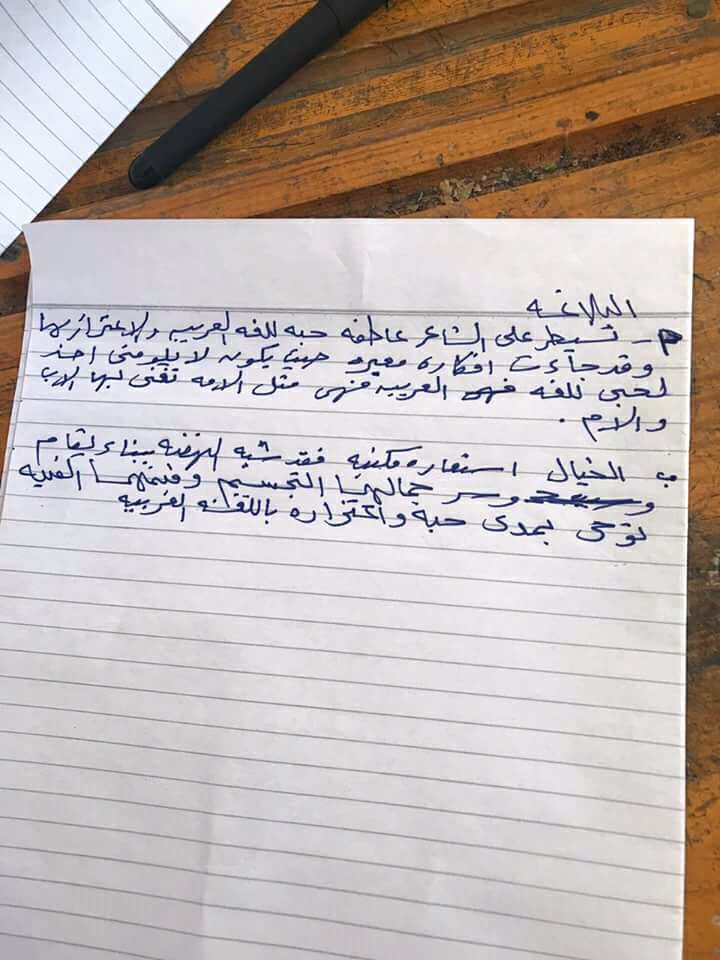 البلاغه
م - تسيطر على الشاعر عاطفه حبه للغه العربيه والاعتزاز بها
وقد جاءت افكاره معبره حيث يكون لا يلومنى احد
لحبى للغه فهى العربيه فهى مثل الامه تغنى بها الاب
والام .
ب الخيال استعاره مكنيه فقد شبه النهضه ببناء يقام
و وسر جمالها التجسيم وقيمتها الفنيه
توحى بمدى حبة واعتزازه باللغه العربيه